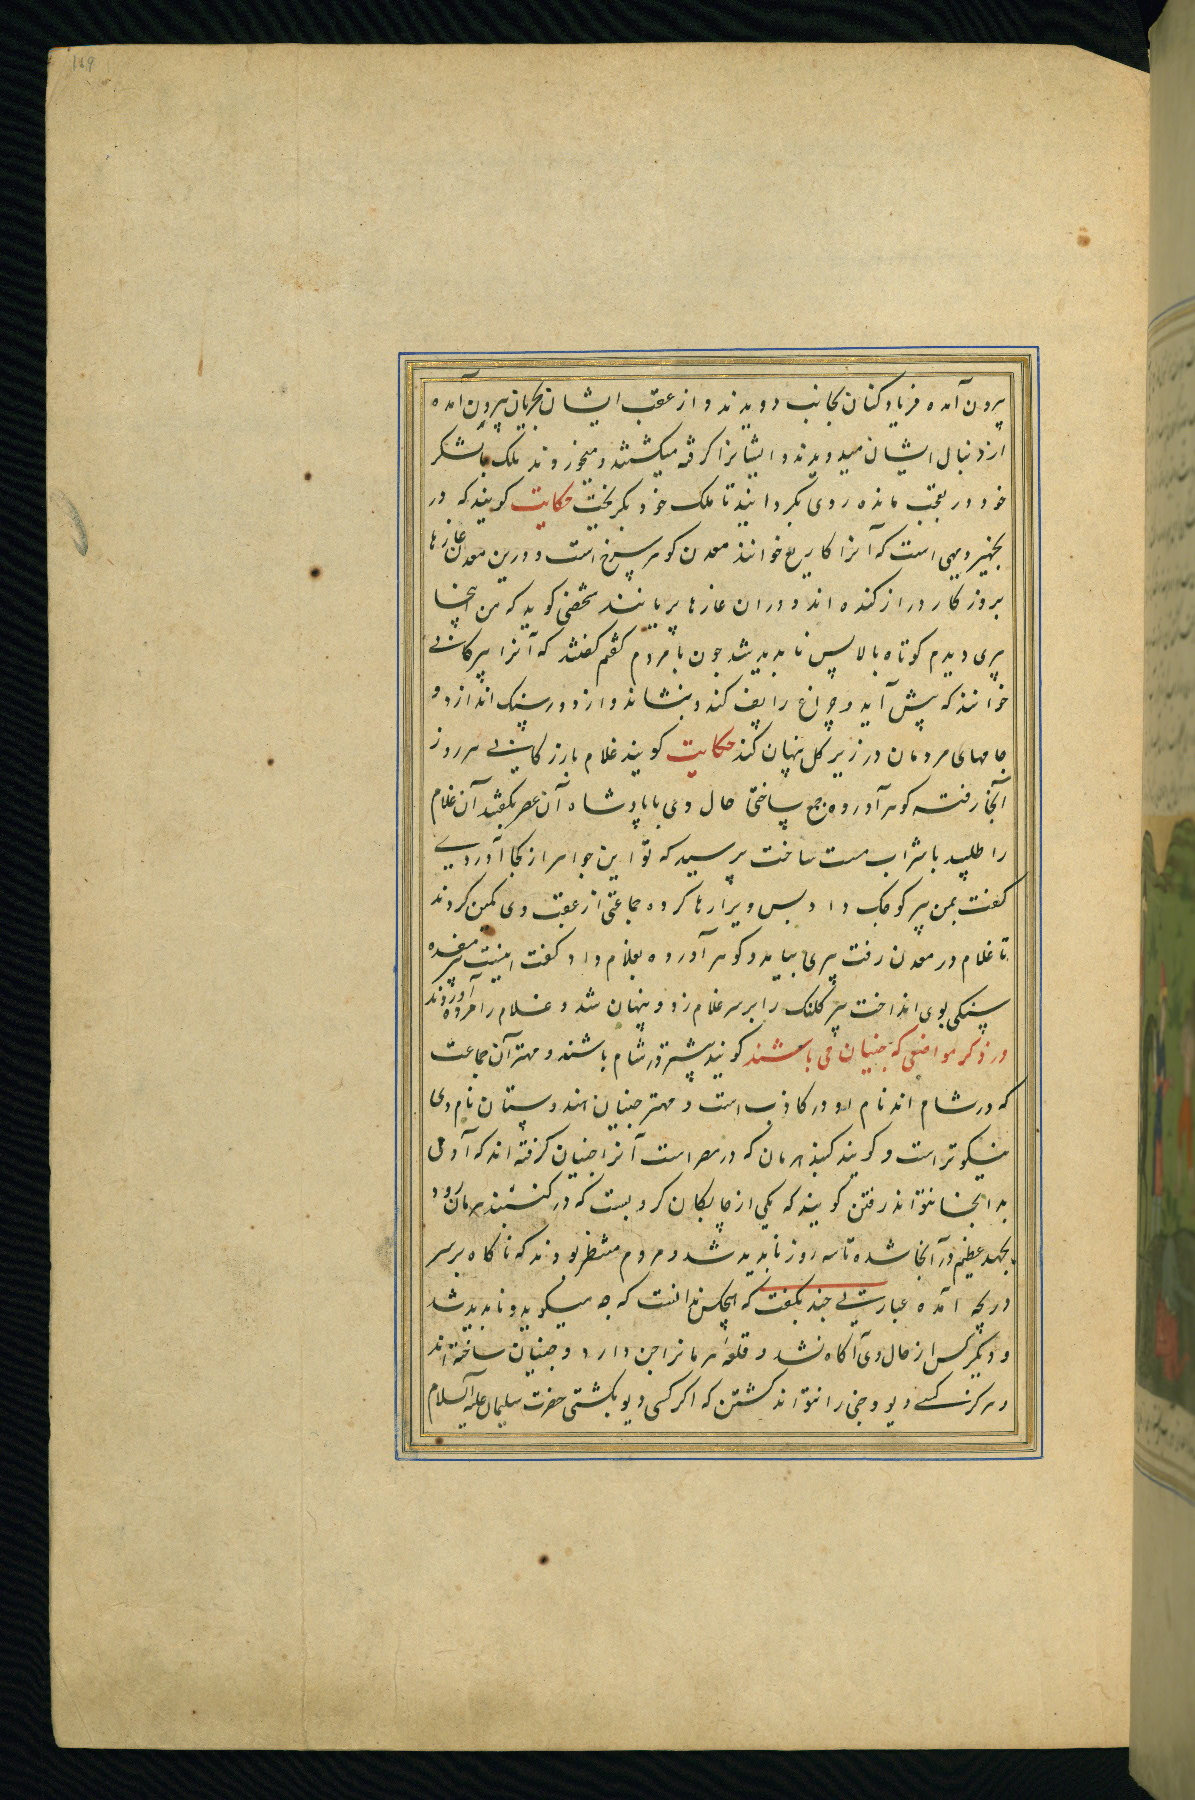 169
بیرون آمده فریاد کنان بجانب دویدند و از عقب ایشان بحریان بیرون آمده
از دنبال ایشان میدویدند و ایشانرا گرفته میکشتند و میخوردند ملک بالشکر
خود در تعجب مانده روی بگردانیدند تا ملک خود بگریخت حکایت کویند که در
دیهی است که آنرا خوانند معدن کوهر سرخ است و درین معدن غارها
بروزکار دراز کنده اند و دران غارها پریانند شخصی کوید که من اینجا
پیری دیدم کوتاه بالا پس نابدید شد جون با مردم کفتم کفتند که آنرا پیر کانی
خوانند که پیش آید و چراغ را پف کند و بنشاند و از دور سنک اندازد و
جامهای مردمان در زیر کل پنهان کند حکایت کویند غلام بازرکانی هر روز
آنجا رفته کوهر آورده جمع ساختی حال وی با پادشاه آن عصر بکفتند آن غلام
را طلبید با شراب مست ساخت پرسید که تو این جواهر از کجا آوردی
کفت بمن پیر کوجک داد پس ویرا رها کرده جماعتی از عقب وی کمین کردند
تا غلام در معدن رفت پیری بیامد و کوهر آورده بغلام داد کفت اینست پیر مفسده
سنکی بوی انداخت پیر کلنک را بر سر غلام زد و پنهان شد و غلام را مرده آوردند
در ذکر مواضعی که جنیان می باشند کویند بیشتر در شام باشند و مهتر آن جماعت
که در شام اند نام او درکاذب است و مهتر جنیان هندوستان نام وی
است و کویند کنبد هرمان که در مصر است آنرا جنیان کرفته اند که آدمی
به آنجا نتواند رفتن کویند که یکی از چابکان کرو بست که در کنبد هرمان رود
بجهد عظیم در آنجا شده تا سه روز نابدید شد و مردم منتظر بودند که ناکاه بر سر
دریچه آمده عبارتی چند بکفت که هیچکس ندانست که چه میکوید و نابدید شد
و دیکر کس از حال وی آکاه نشد و قلعه هرمانرا جن دارد و جنیان ساخته اند
و هرکز کسی دیو و جنی را نتواند کشتن که اکر کسی دیو بکشتی حضرت سلیمان علیه السلام